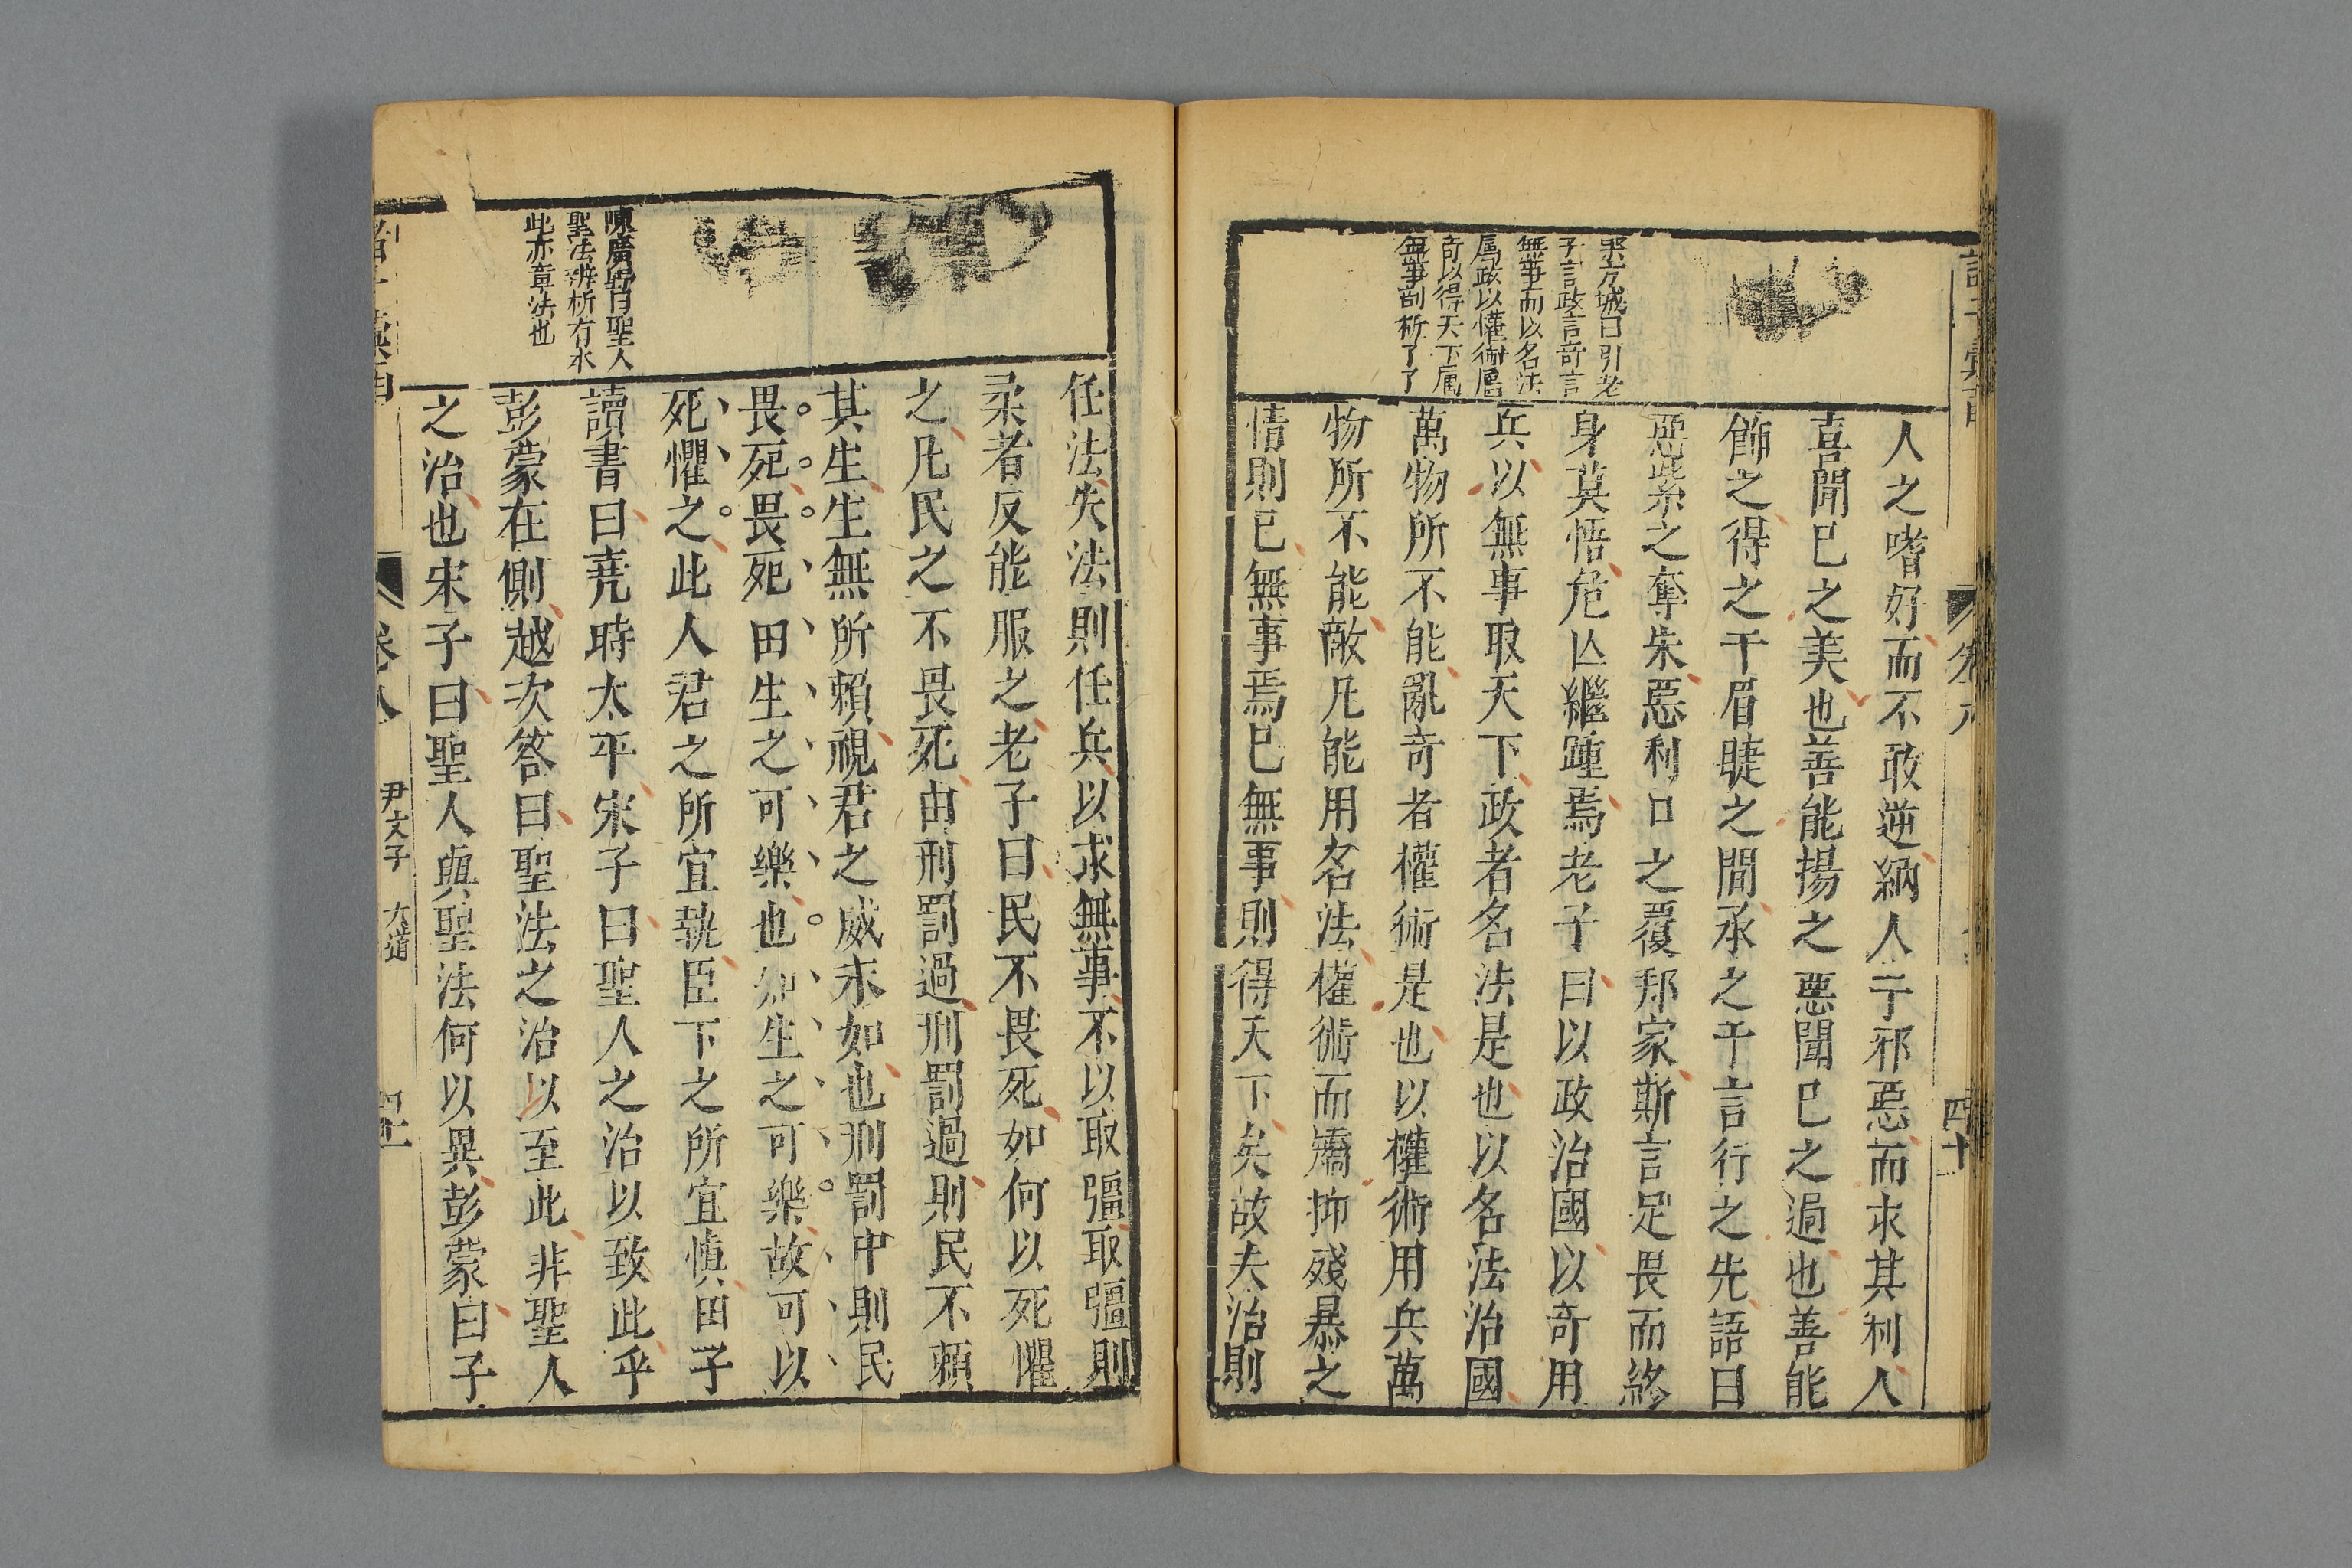 人之嗜好而不敢逆納人于邪惡而求其利人
喜聞己之美也善能揚之惡聞己之過也善能
飾之得之于眉睫之間承之于言行之先語曰
惡紫之奪朱惡利口之覆邦家斯言足畏而終
身莫悟危亾繼踵焉老子曰以政治國以奇用
兵以無事取天下政者名法是也以名法治國
萬物所不能亂奇者權術是也以權術用兵萬
物所不能敵凡能用名法權術而矯抑殘暴之
情則己無事焉己無事則得天下矣故夫治則
方城曰引老
子言政言奇言
無事而以名法
屬政以權術屬
奇以得天下屬
無事剖析了了
四十
任法失法則任兵以求無事不以取彊取彊則
柔者反能服之老子曰民不畏死如何以死懼
之凡民之不畏死由刑罰過刑罰過則民不賴
其生生無所賴視君之威末如也刑罰中則民
畏死畏死由生之可樂也知生之可樂故可以
死懼之此人君之所宜執臣下之所宜慎田子
讀書曰堯時太平宋子曰聖人之治以致此乎
彭蒙在側越次答曰聖法之治以至此非聖人
之治也宋子曰聖人與聖法何以異彭蒙曰子
陳廣野曰聖人
聖法辨析冇水
此亦章法也
卷八
尹文子
大道